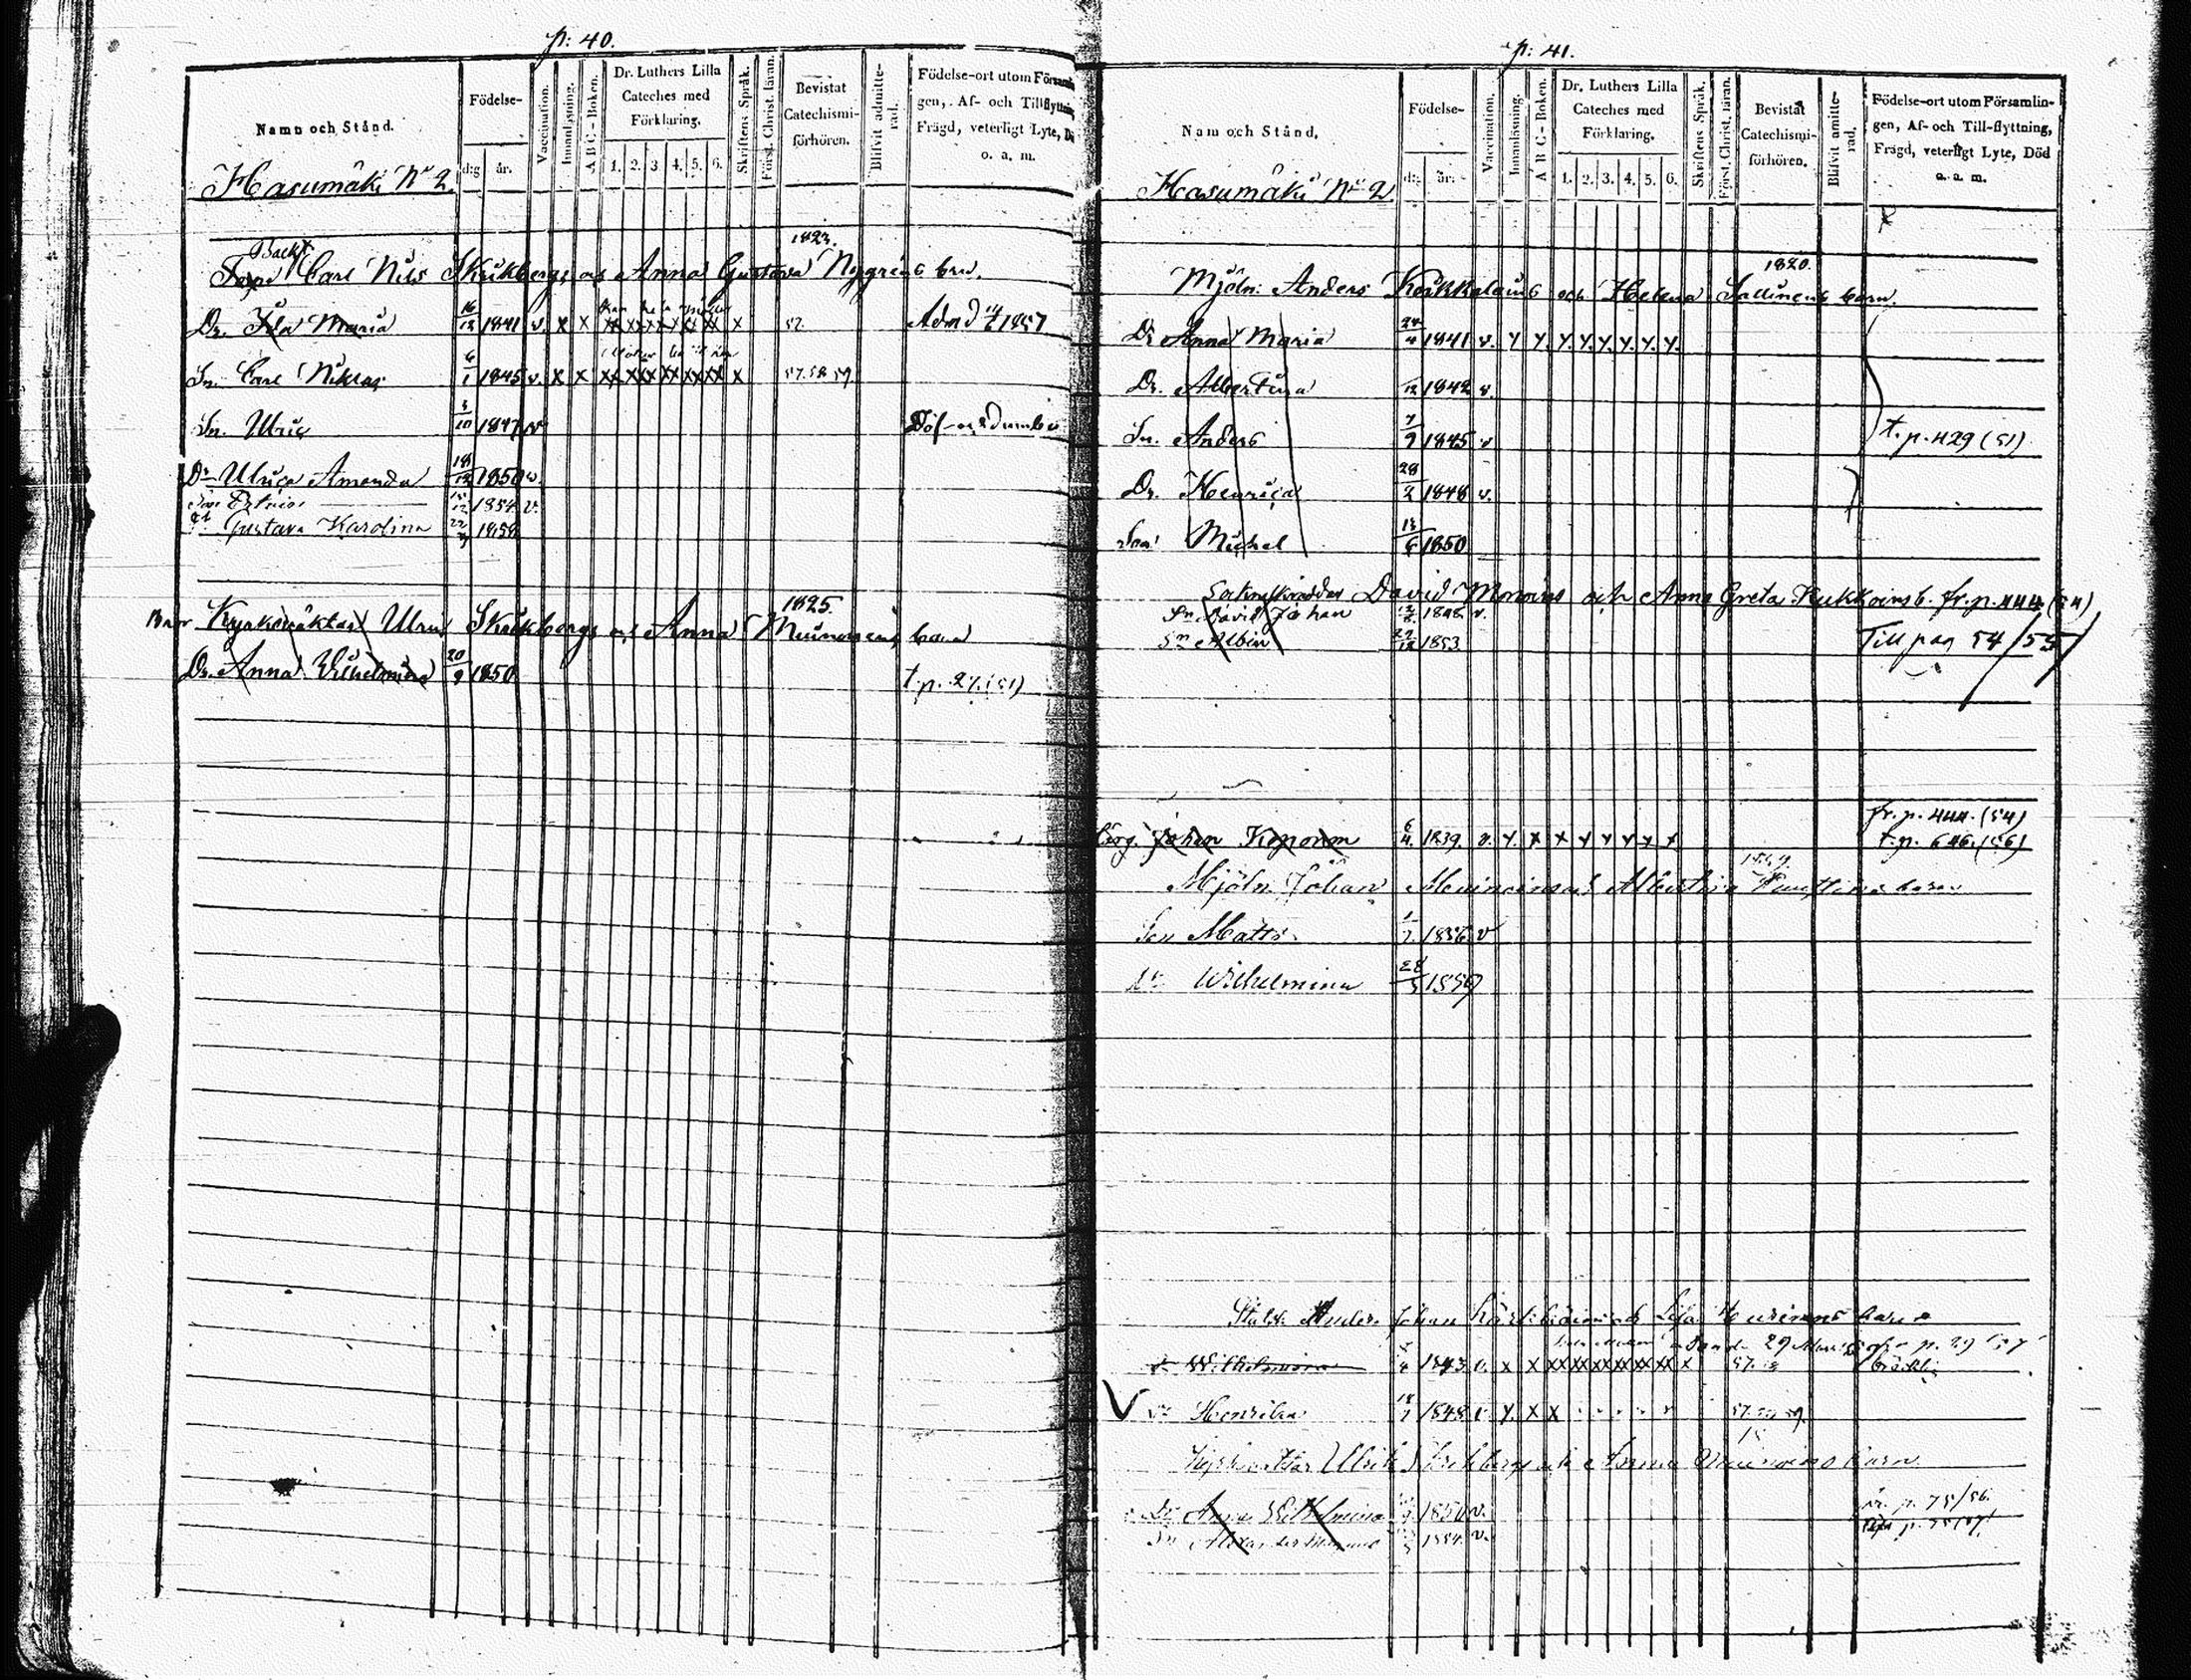 p: 40.
Namn och Stånd.
Födelse-
dg år.
Vaccination.
Innanläsning.
A B C - Boken.
Dr. Luthers Lilla
Cateches med
Förklaring.
1. 2. 3 4. 5. 6.
Skriftens Språk.
Först. Christ. läran.
Bevistat
Catechismi-
förhören.
Blifvit admitte-
rad.
Födelse-ort utom Församlin
gen, Af- och Tillflyttning,
Frägd, veterligt Lyte, Dö
o. a. m.
Hasumäki No 2.
Backst
1823.
Carl Nils Skrikbergs och Anna Gustava Nygréns barn.
Dr. Ida Maria 16/12 1841 v. x x xx xx xx xx xx xx x 57 Admd 14/6 1857
Sn. Carl Niklas 6/1 1845 v. x x xx xx xx xx xx xx x 57. 58 59.
Sn. Ulric 3/10 1847 v
Döf- och dumbe
Dr Ulrica Amanda 18/12 1850 v
1854 v.
Dr Gustava Karolina 22 1858
1825.
Ulric Skrikbergs och Anna Muinosens barn
Dr. Anna Wilhelmina 20/9 1850
t. p. 27. (51)
p: 41.
Nam och Stånd,
Födelse-
dg år.
Vaccination.
Innanläsning.
A B C - Boken.
Dr. Luthers Lilla
Cateches med
Förklaring.
1. 2. 3. 4. 5. 6.
Skriftens Språk.
Först. Christ. läran.
Bevistat
Catechismi-
förhören.
Blifvit amitte-
rad,
Födelse-ort utom Församlin-
gen, Af- och Till-flyttning,
Frägd, veterligt Lyte, Död
o. a. m.
Hasumäki No 2
1820.
Mjöln: Anders Kokkolains och Helena Sallinens barn.
Dr Anna Maria 24/4 1841 v. y y y. y. y. y. y. y.
Dr. Albertina /12 1842 v.
Sn. Anders 7/9 1845 v
t. p. 429 (51)
Dr. Henrica 28/2 1848 v.
Son Michel 13/6 1850
Sockneskräddar David och Anna Greta Kukkoins b. fr. p. 444 (54)
Sn David Johan 1848 v.
Sn Albin 22/12 1853
Till pag 54/55
fr. p. 444. (54)
Johan Koponen 6/4. 1839. v. y. x x y y y y x
t. p. 646. (56)
Mjöln Johan Albertina barn
Son Matts 1/7. 1856 v
Dr Wilhelmina 28/5 1859
Johan barn
Dr Wilhelmina 1843 v. x x xx xx xx xx xx xx x 57.
V Dr Henrika 18/7 1848 v. y. x x 57. 58 59.
Ulrik Skrikberg och Anna Muinoins barn
Dr Anna Wilhelmina 1850 v.
fr. p. 75/56.
Sn 1854. v.